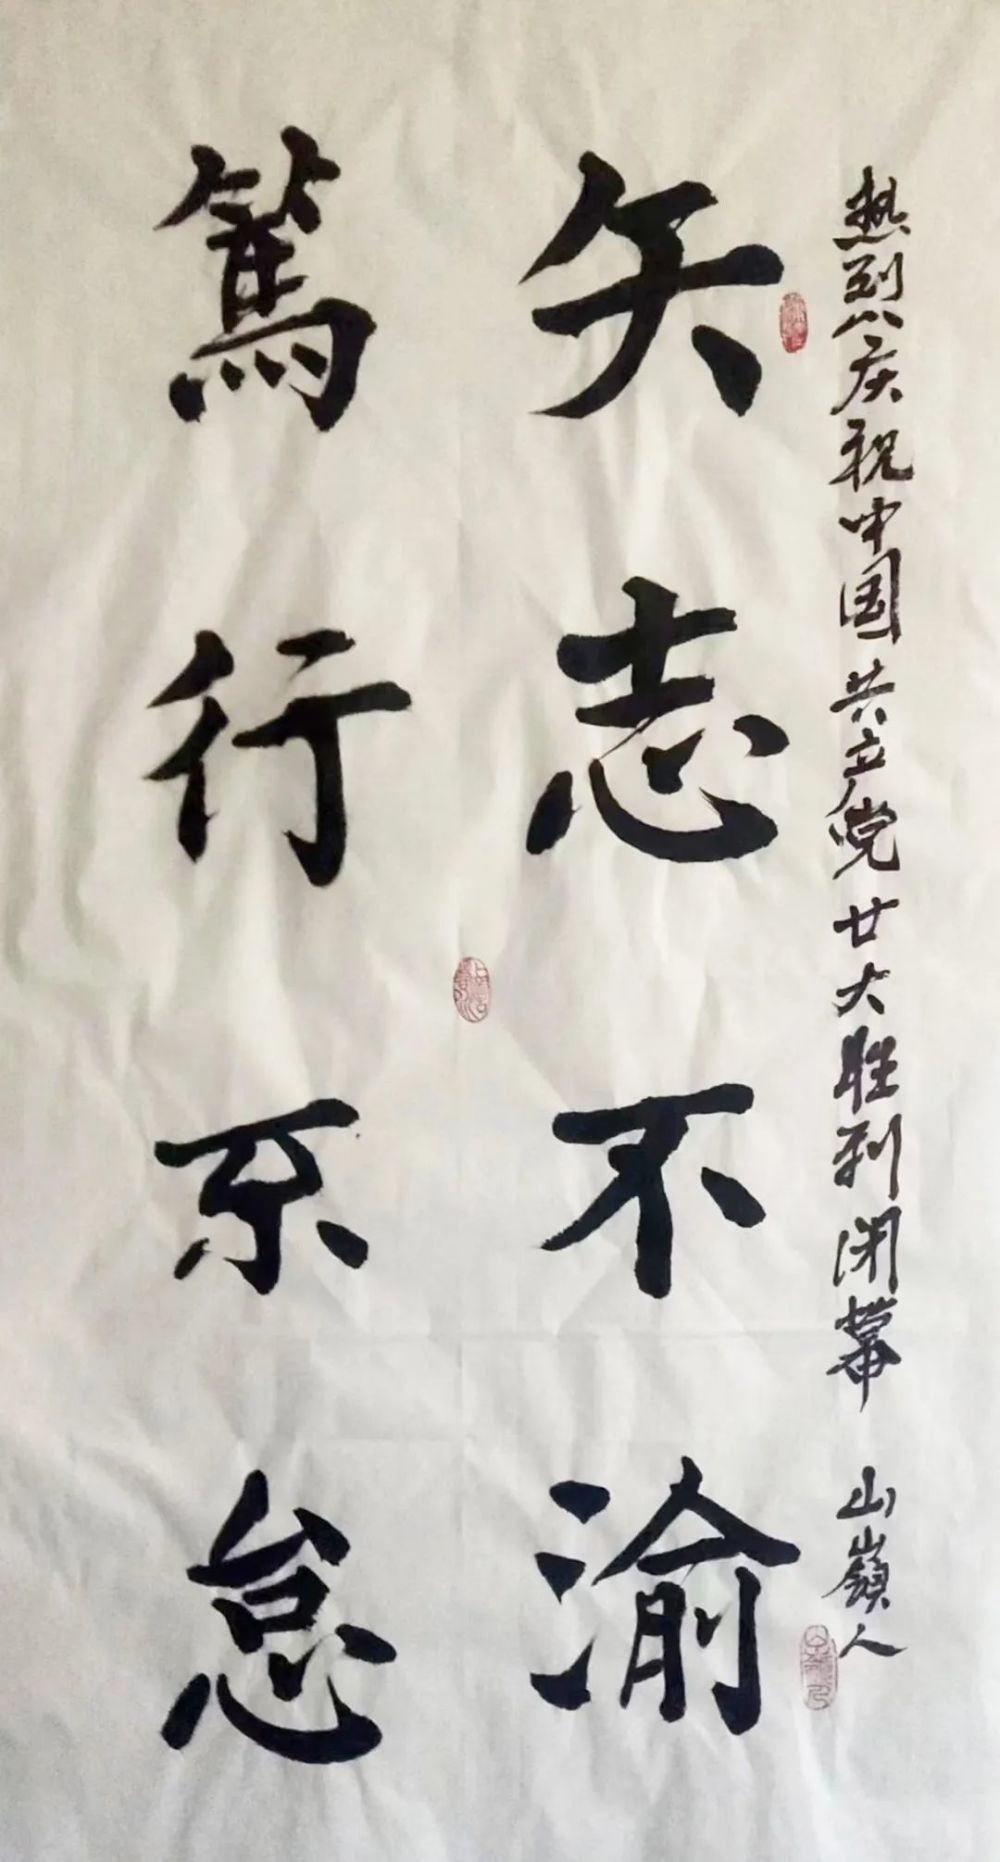 热烈庆祝中国共产党廿大胜利闭幕 山嶺人
矢志不渝
篤行不怠